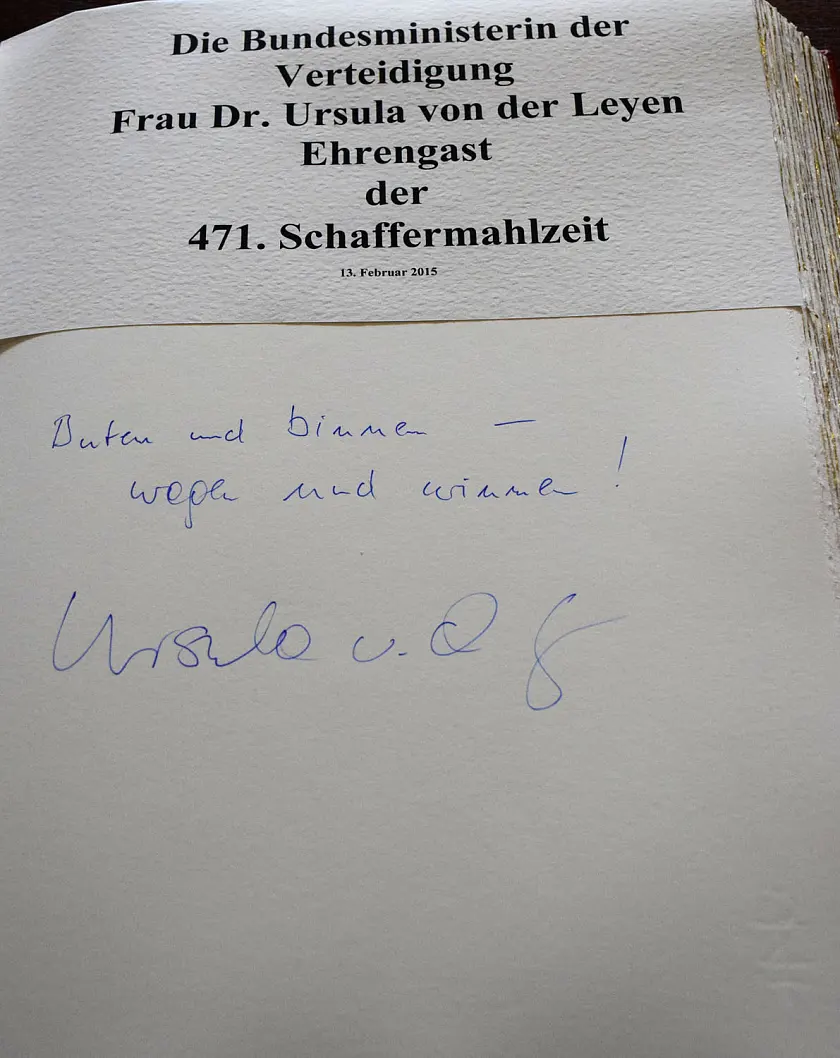 Die Bundesministerin der
Verteidigung
Frau Dr. Ursula von der Leyen
Ehrengast
der
471. Schaffermahlzeit
13. Februar 2015
Buten und binnen –
wagen und winnen!
Ursula v. d.